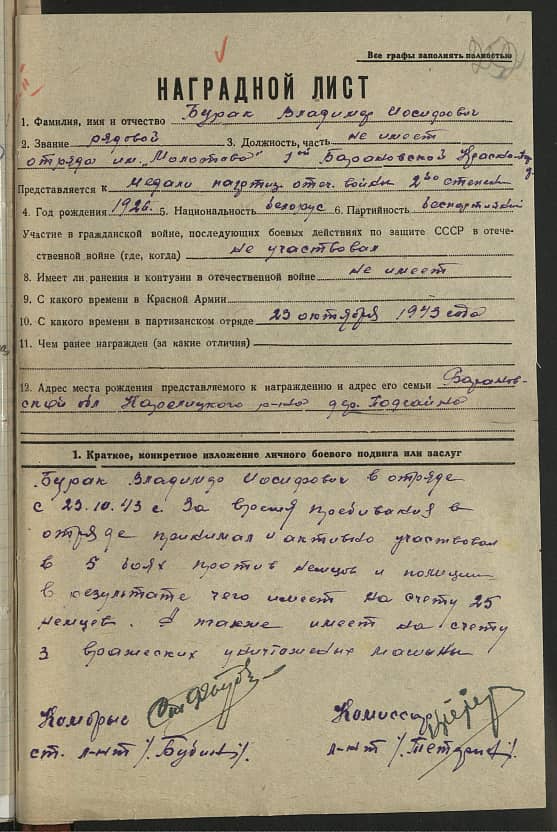 Все графы заполнять полностью
НАГРАДНОЙ ЛИСТ
1. Фамилия, имя и отчество Бурак Владимир Иосифович
2. Звание рядовой 3. Должность, часть не имеет
отряда им. „Молотова" 1ой Барановской
Представляется к медали партиз. отеч. войны 2ой степени
4. Год рождения 1926. 5. Национальность белорус 6. Партийность беспартийный
Участие в гражданской войне, последующих боевых действиях по защите СССР в отече-
ственной войне (где, когда) не участвовал
8. Имеет ли ранения и контузии в отечественной войне не имеет
9. С какого времени в Красной Армии
10. С какого времени в партизанском отряде 23 октября 1943 года
11. Чем ранее награжден (за какие отличия)
12. Адрес места рождения представляемого к награждению и адрес его семьи Баранов-
ской обл р-на дер.
1. Краткое, конкретное изложение личного боевого подвига или заслуг
Бурак Владимир Иосифович в отряде
с 23.10.43 г За время пребывания в
отряде принимал и активно участвовал
в 5 боях против немцев и полиции
в результате чего имеет на счету 25
немцев. А также имеет на счету
3 вражеских уничтожених машины
Комбриг Комиссар
ст. л-нт /. Бубин /. л-нт /.